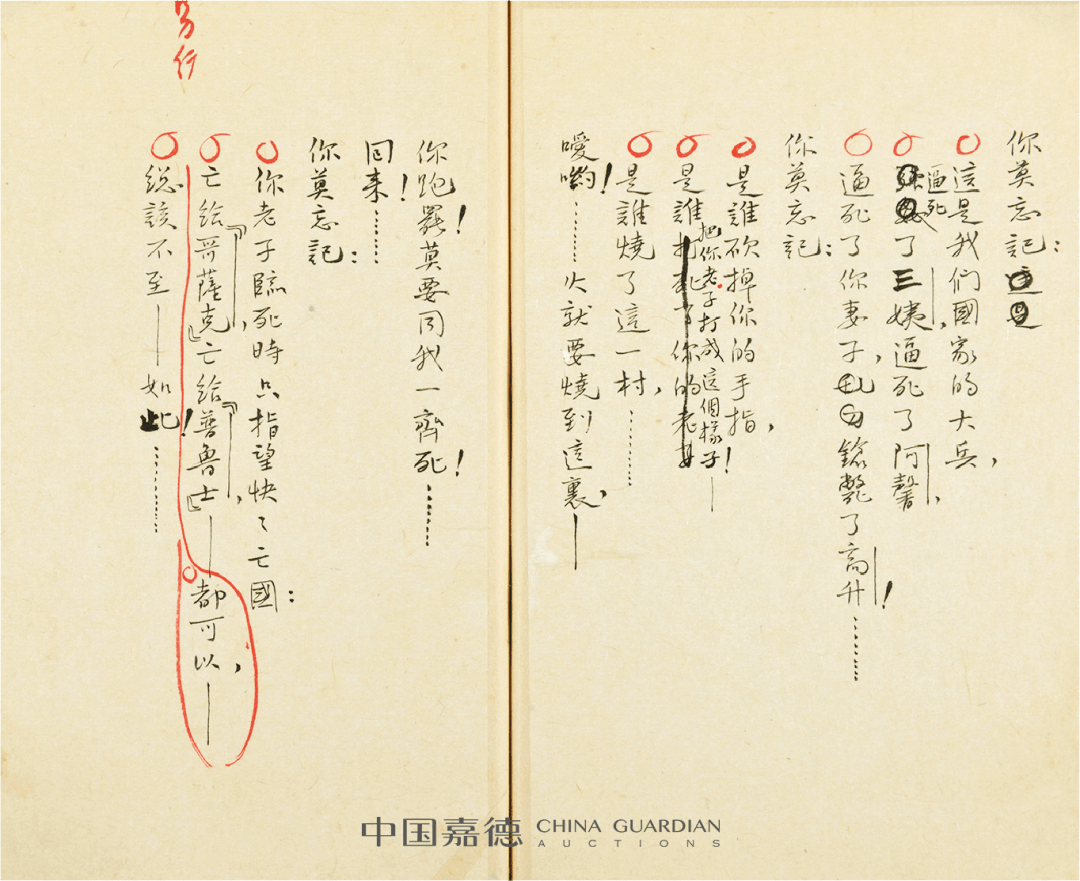 你莫忘記：
這是我們國家的大兵，
逼死了三姨，逼死了阿馨，
逼死了你妻子，鎗斃了高升！……
你莫忘記：
是誰砍掉你的手指，
是誰把你老子打成這個樣子！—
是誰燒了這一村，……
噯喲！……火就要燒到這裏，—
你跑罷！莫要同我一齊死！……
回来！……
你莫忘記：
你老子臨死時只指望快々亡國：
亡给『哥薩克』，亡给『普魯士』，—都可以，—
總該不至—如此！……
另行
中国嘉德 CHINA GUARDIAN
AUCTIONS